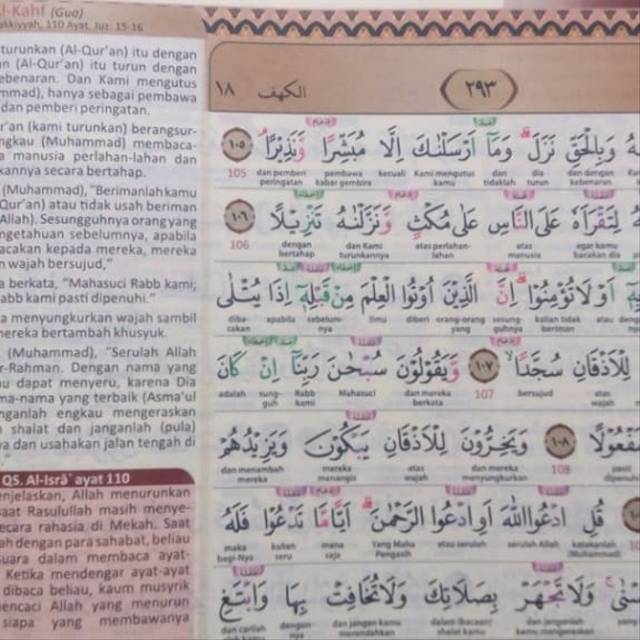 l-Kahf (Gua)
akkiyyah, 110 Ayat, Juz: 15-16
turunkan (Al-Qur'an) itu dengan
n (Al-Qur'an) itu turun dengan
ebenaran. Dan Kami mengutus
mmad), hanya sebagai pembawa
dan pemberi peringatan.
r'an (kami turunkan) berangsur-
ngkau (Muhammad) membaca-
a manusia perlahan-lahan dan
kannya secara bertahap.
(Muhammad), "Berimanlah kamu
Qur'an) atau tidak usah beriman
Allah). Sesungguhnya orang yang
ngetahuan sebelumnya, apabila
acakan kepada mereka, mereka
n wajah bersujud,"
a berkata, "Mahasuci Rabb kami;
abb kami pasti dipenuhi."
a menyungkurkan wajah sambil
mereka bertambah khusyuk.
(Muhammad), "Serulah Allah
r-Rahman. Dengan nama yang
u dapat menyeru, karena Dia
ma-nama yang terbaik (Asma'ul
nganlah engkau mengeraskan
shalat dan janganlah (pula)
ya dan usahakan jalan tengah di
QS. Al-Isrā' ayat 110
enjelaskan, Allah menurunkan
saat Rasulullah masih menye-
ecara rahasia di Mekah. Saat
ah dengan para sahabat, beliau
suara dalam membaca ayat-
Ketika mendengar ayat-ayat
dibaca beliau, kaum musyrik
encaci Allah yang menurun
siapa yang membawanya
٢٩٣ الكهف ١٨
وَبِالْحَقِّ نَزَلَ وَمَآ اَرْسَلْنٰكَ اِلَّا مُبَشِّرًا وَّنَذِيْرًا ١٠٥
dan dengan Kebenaran dia turun dan tidaklah Kami mengutus kamu kecuali pembawa kabar gembira dan pemberi peringatan 105
لِتَقْرَاَهٗ عَلَى النَّاسِ عَلٰى مُكْثٍ وَّنَزَّلْنٰهُ تَنْزِيْلًا ١٠٦
agar kamu bacakan dia atas manusia atas perlahan-lahan dan Kami turunkannya dengan bertahap 106
اَوْ لَا تُؤْمِنُوْا اِنَّ الَّذِيْنَ اُوْتُوا الْعِلْمَ مِنْ قَبْلِهٖٓ اِذَا يُتْلٰى
atau kalian tidak beriman sesung-guhnya orang-orang yang diberi ilmu sebelum-nya apabila diba-cakan
لِلْاَذْقَانِ سُجَّدًا ١٠٧ وَّيَقُوْلُوْنَ سُبْحٰنَ رَبِّنَآ اِنْ كَانَ
atas wajah bersujud 107 dan mereka berkata Mahasuci Rabb kami sung-guh adalah
١٠٨ وَيَخِرُّوْنَ لِلْاَذْقَانِ يَبْكُوْنَ وَيَزِيْدُهُمْ
108 dan mereka menyungkurkan atas wajah mereka menangis dan menambah mereka
قُلِ ادْعُوا اللّٰهَ اَوِ ادْعُوا الرَّحْمٰنَ اَيًّا مَّا تَدْعُوْا فَلَهُ
katakanlah (Muhammad) serulah Allah atau serulah Yang Maha Pengasih mana saja kalian seru maka bagi-Nya
وَلَا تَجْهَرْ بِصَلَاتِكَ وَلَا تُخَافِتْ بِهَا وَابْتَغِ